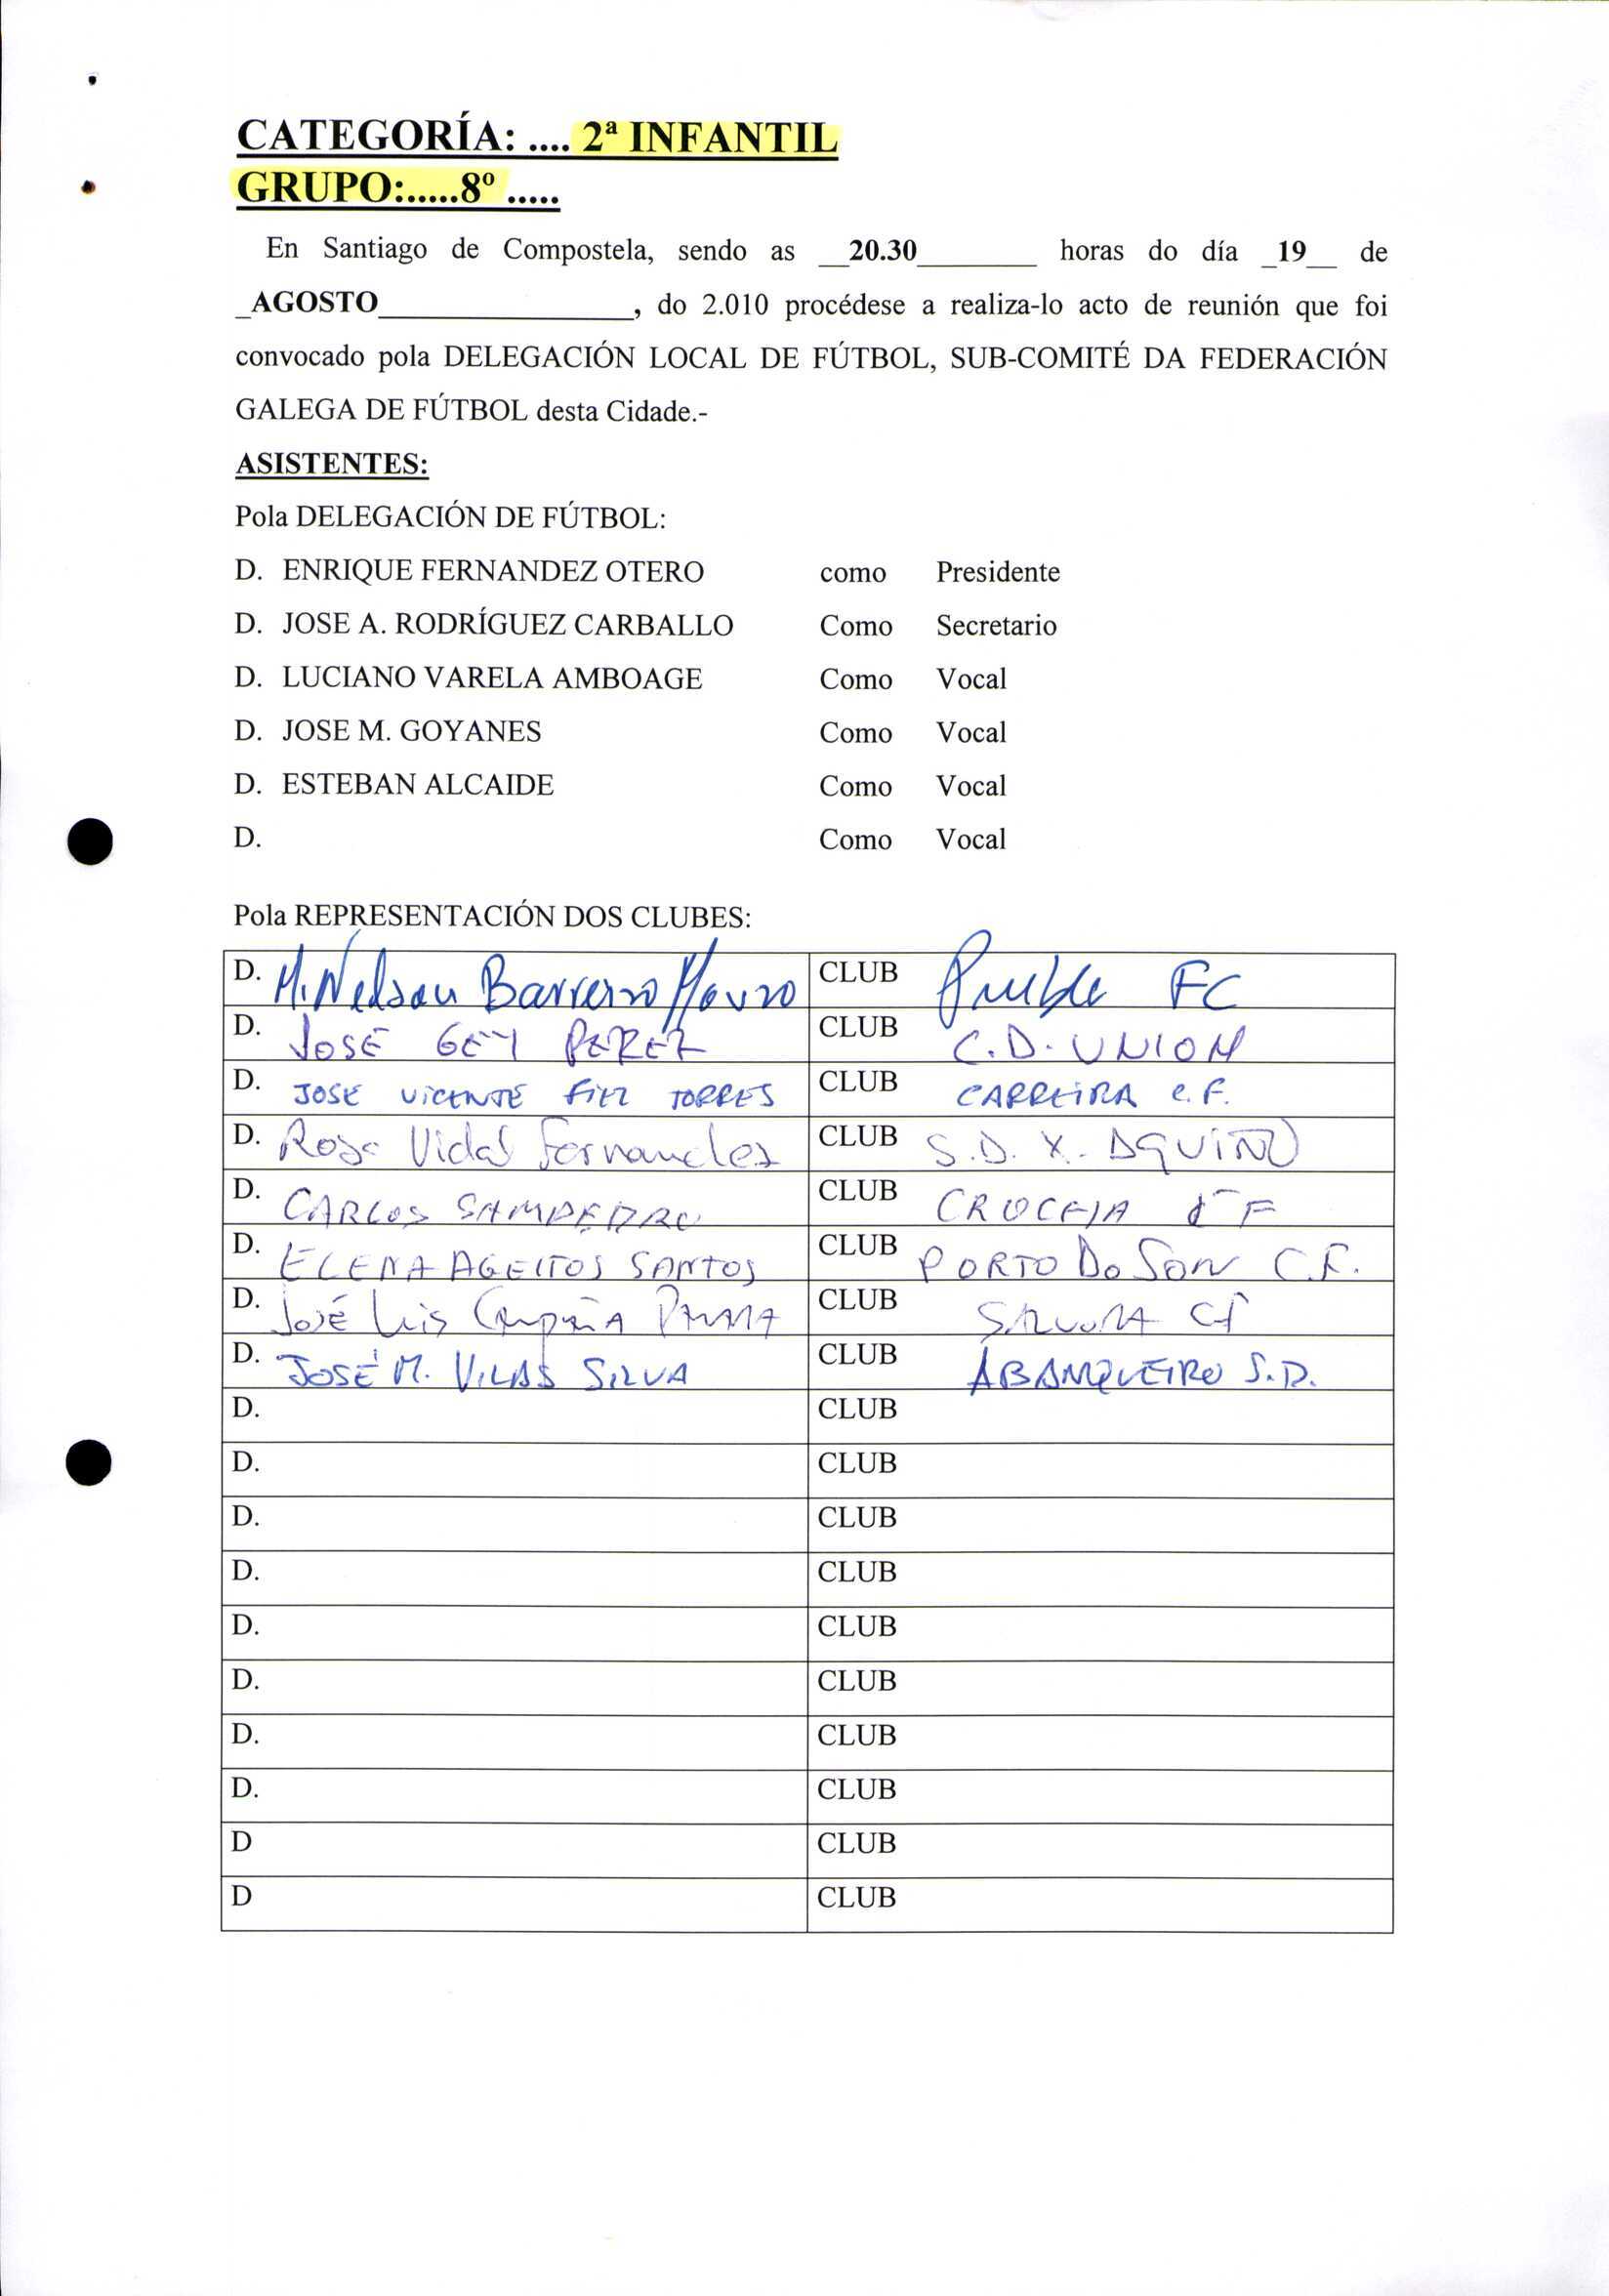 CATEGORÍA: .... 2ª INFANTIL
GRUPO:.....8º .....
En Santiago de Compostela, sendo as __20.30________ horas do día _19__ de
_AGOSTO_________________, do 2.010 procédese a realiza-lo acto de reunión que foi
convocado pola DELEGACIÓN LOCAL DE FÚTBOL, SUB-COMITÉ DA FEDERACIÓN
GALEGA DE FÚTBOL desta Cidade.-
ASISTENTES:
Pola DELEGACIÓN DE FÚTBOL:
D. ENRIQUE FERNANDEZ OTERO como Presidente
D. JOSE A. RODRÍGUEZ CARBALLO Como Secretario
D. LUCIANO VARELA AMBOAGE Como Vocal
D. JOSE M. GOYANES Como Vocal
D. ESTEBAN ALCAIDE Como Vocal
D. Como Vocal
Pola REPRESENTACIÓN DOS CLUBES:
D. M. Nelson Barreiro Mouzo CLUB FC
D. JOSÉ GEY PEREZ CLUB C.D. UNION
D. JOSE VICENTE TORRES CLUB CARREIRA C.F.
D. Rosa Vidal Fernandez CLUB S.D. X. AQUIÑO
D. CARLOS SAMPEDRO CLUB CRUCEIA
D. ELENA AGEITOS SANTOS CLUB PORTO DO SON C.F.
D. José Luis CLUB SALVORA CF
D. JOSÉ M. VILAS SILVA CLUB ABANQUEIRO S.D.
D. CLUB
D. CLUB
D. CLUB
D. CLUB
D. CLUB
D. CLUB
D. CLUB
D. CLUB
D CLUB
D CLUB